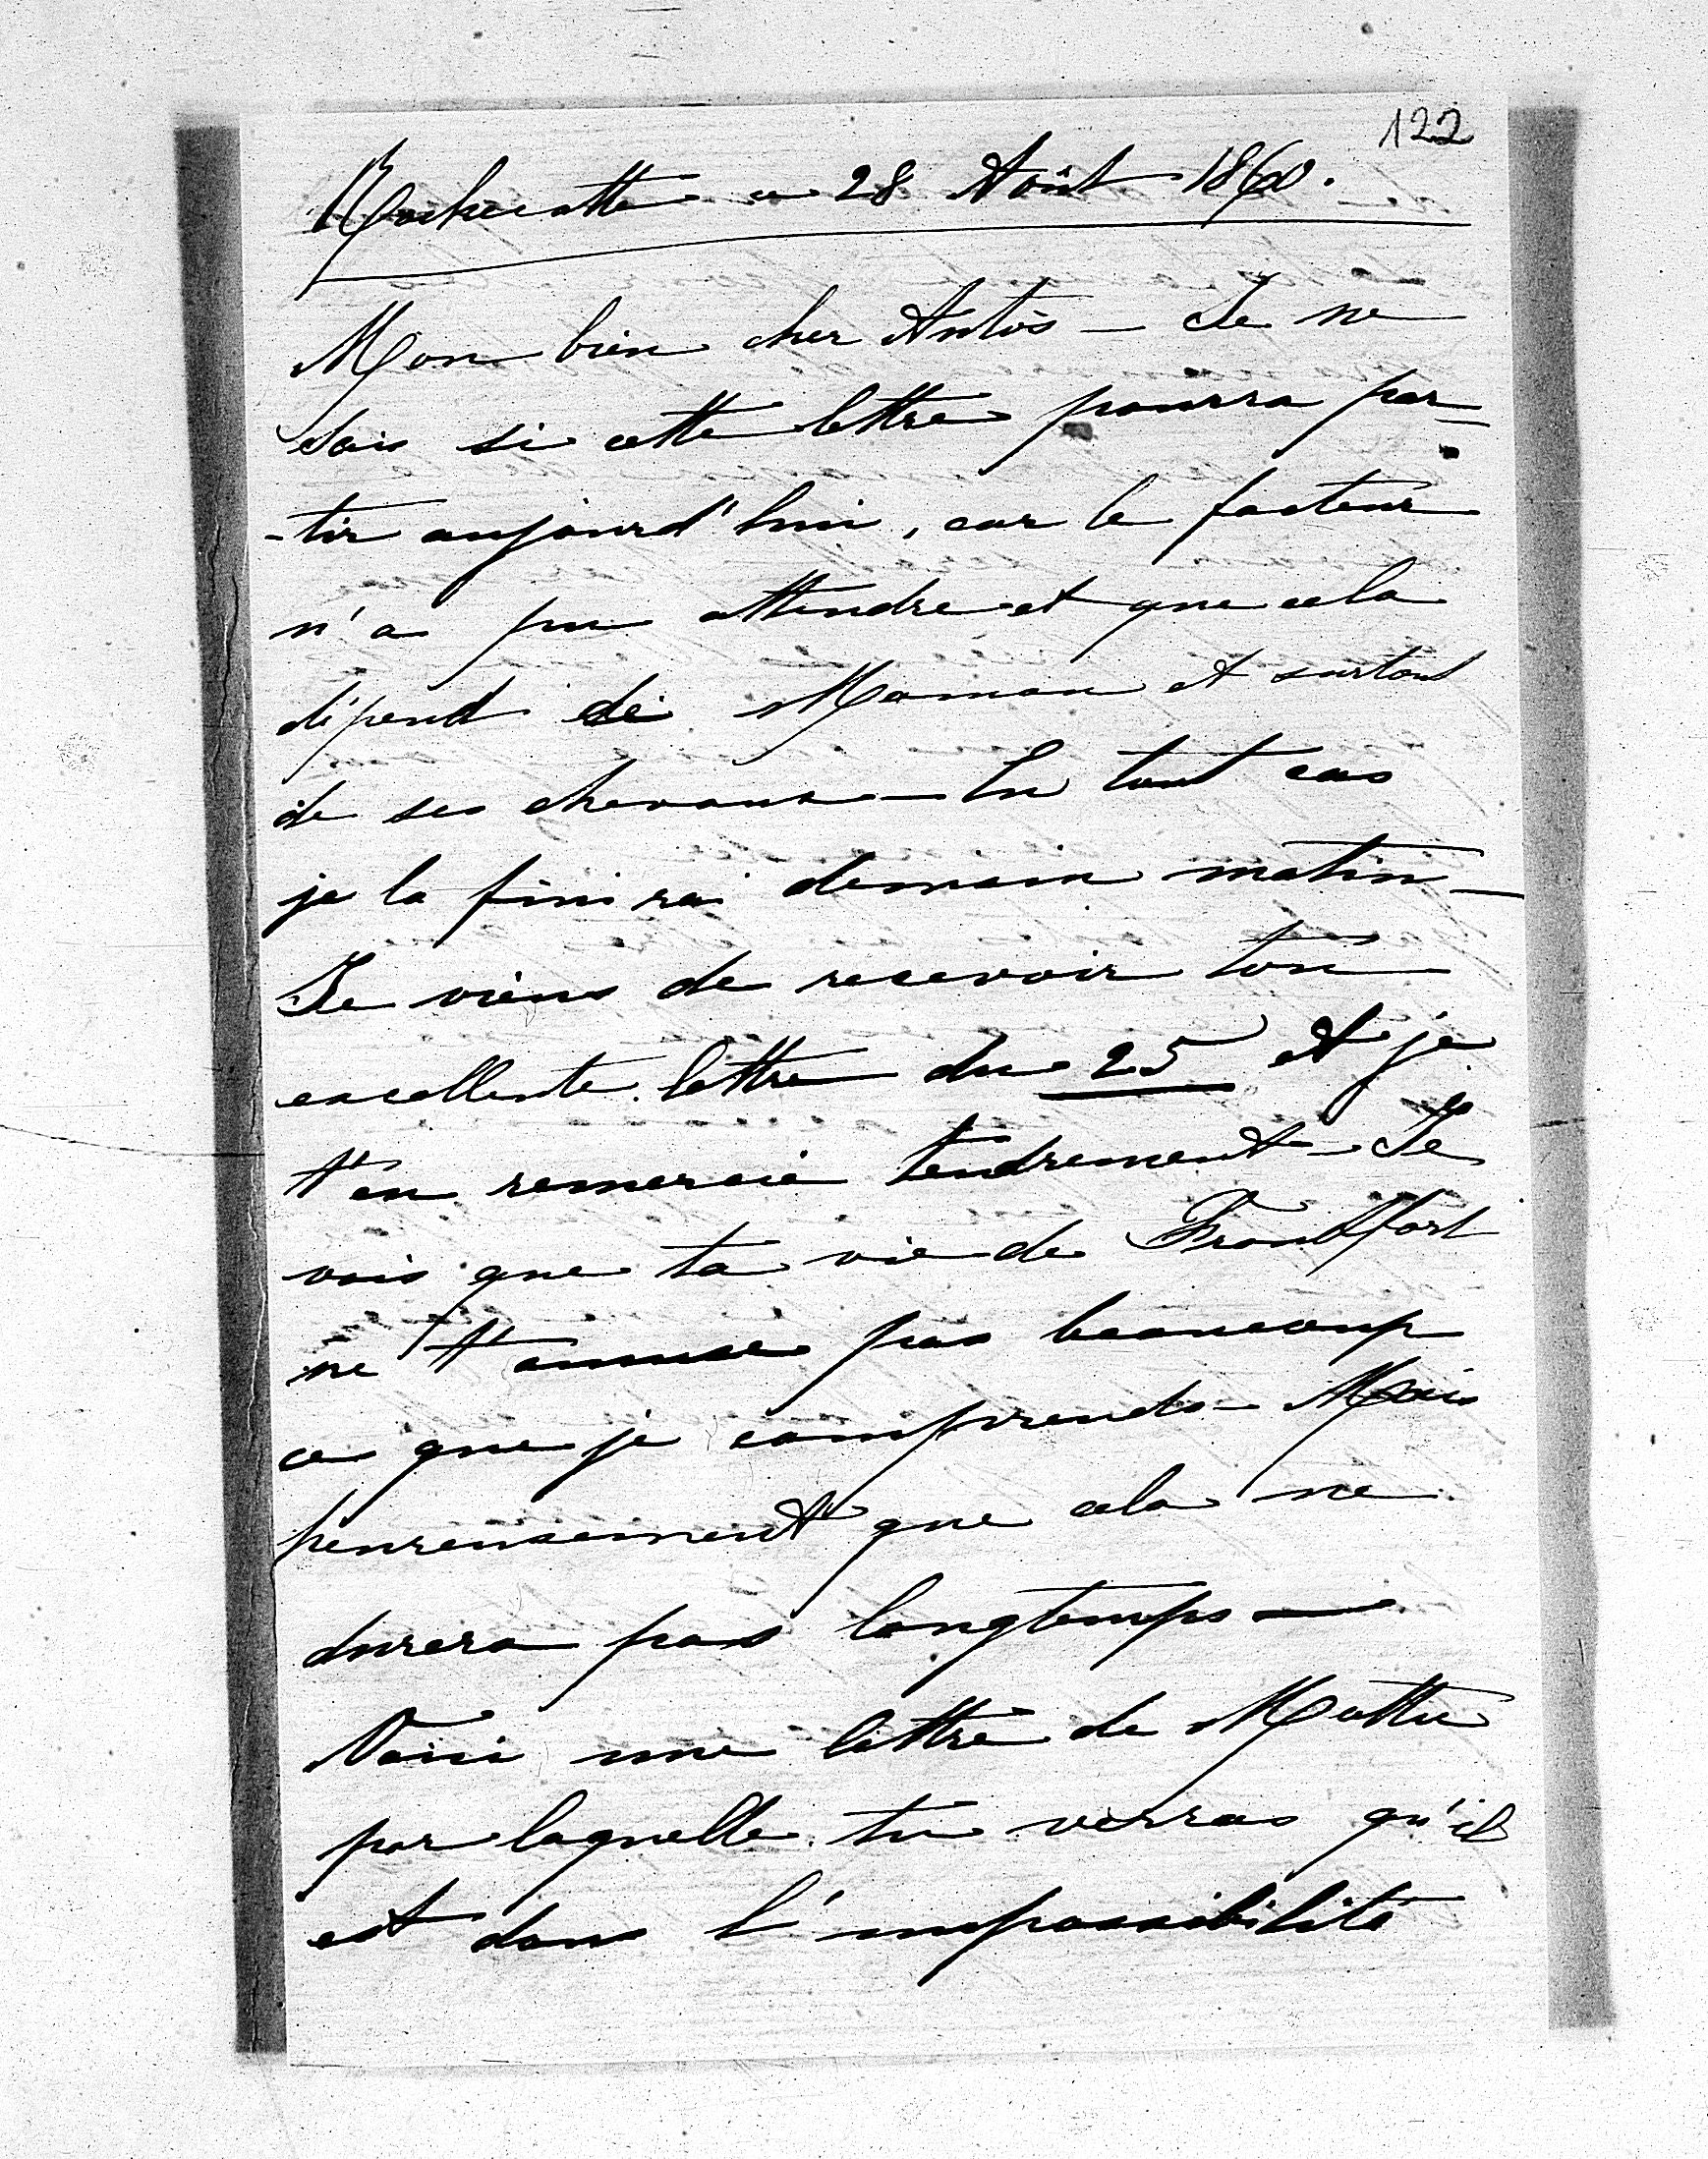 122
Rochecotte ce 28 Août 1860.
Mon bien cher Antós — Je ne
sais si cette lettre pourra par=
-tir aujourd'hui, car le facteur
n'a pu attendre et que cela
dépend de Maman et surtout
de ses chevaux — En tout cas
je la finirai demain matin —
Je viens de recevoir ton
excellente lettre du 25 et je
t'en remercie tendrement — Je
vois que ta vie de Frankfort
ne t'amuse pas beaucoup
ce que je comprends — Mais
heureusement que cela ne
durera pas longtemps —
Voici une lettre de
par laquelle tu verras qu'il
est dans l'impossibilité